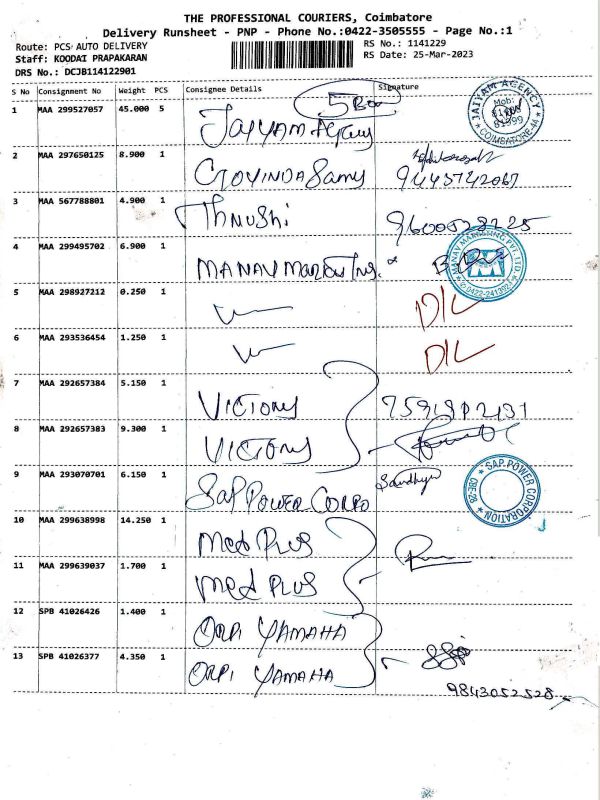 THE PROFESSIONAL COURIERS, Coimbatore
Delivery Runsheet - PNP - Phone No.:0422-3505555 - Page No.:1
Route: PCS AUTO DELIVERY
RS No.: 1141229
Staff: KOODAI PRAPAKARAN
RS Date: 25-Mar-2023
DRS No.: DCJB114122901
S No Consignment No Weight PCS Consignee Details Signature
1 MAA 299527057 45.000 5 JAIYAM Agency
JAIYAM AGENCY Mob: COIMBATORE-44
2 MAA 297650125 8.900 1 GOVINDASamy
3 MAA 567788801 4.900 1 Thnushi
4 MAA 299495702 6.900 1 MANAV
MANAV MARKETING PVT. LTD.
5 MAA 298927212 0.250 1 D/L
6 MAA 293536454 1.250 1 D/L
7 MAA 292657384 5.150 1 VICTORY
8 MAA 292657383 9.300 1 VICTORY
9 MAA 293070701 6.150 1 SAP POWER CORPO Sandhya
SAP POWER CORPORATION CBE-28
10 MAA 299638998 14.250 1 Med PLUS
11 MAA 299639037 1.700 1 Med PLUS
12 SPB 41026426 1.400 1 ORPI YAMAHA
13 SPB 41026377 4.350 1 ORPI YAMAHA
9843052528